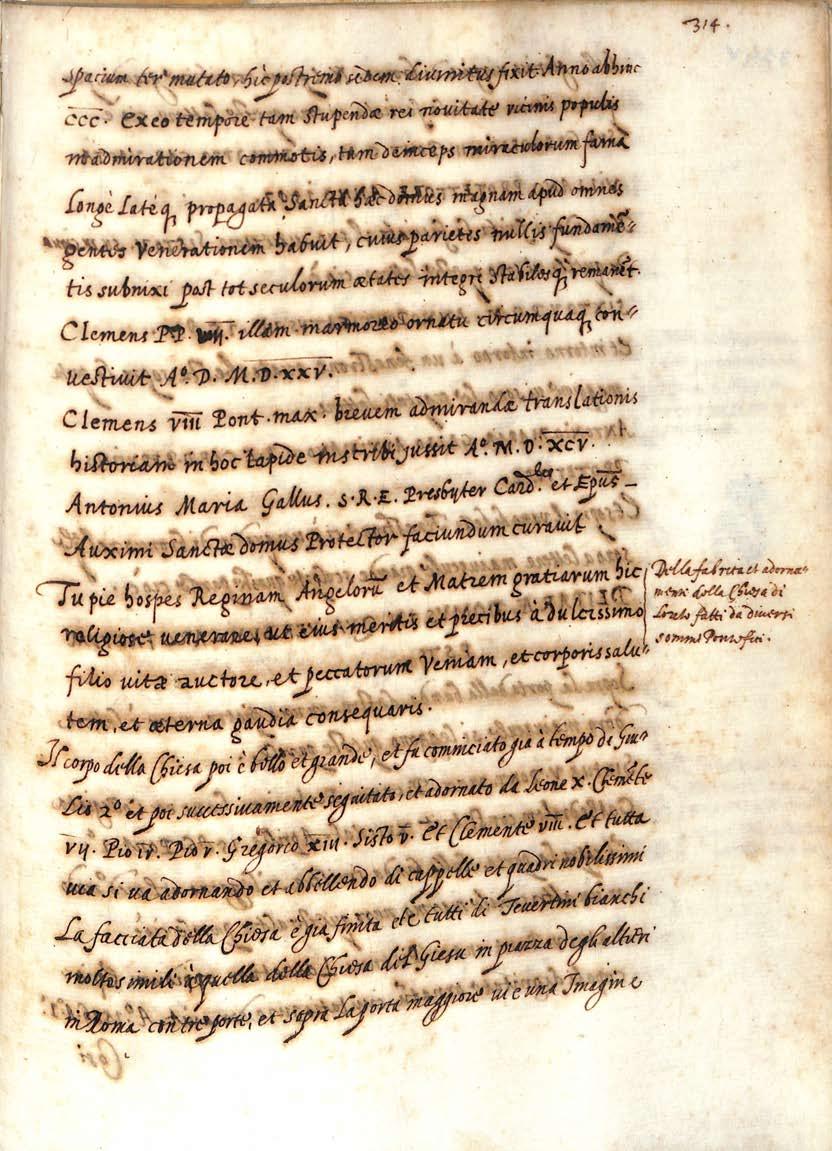 314.
spacium ter mutato, hic postremo sedem divinitus fixit Anno abhinc
CCC. Ex eo tempore tam stupendæ rei novitate vicinis populis
in admirationem commotis, tum deinceps miraculorum fama
Longè Latéq, propagata, Sancta hæc domus magnam apud omnes
gentes Venerationem habuit, cuius parietes nullis fundamē=
tis subnixi post tot seculorum ætates integri stabilesq, remanēt.
Clemens P.P. vij. illam marmoreo ornatu circumquaq, con=
vestivit Aº. D. M.D.XXV.
Clemens viii Pont. max. brevem admirandæ translationis
historiam in hoc lapide inscribi jussit Aº. M. D. XCV.
Antonius Maria Gallus. S.R.E. Presbyter Card.les et Epūs
Auximi Sanctæ domus Protector faciundum curavit
Tu pie hospes Reginam Angelorū et Matrem gratiarum hic
religiosè venerare, ut eius meritis et precibus à dulcissimo
filio vitæ auctore, et peccatorum Veniam, et corporis salu=
tem, et æterna gaudia consequaris.
Della fabrica et adorna=
menti della Chiesa di
Loreto fatti da diversi
sommi Pontefici.
Il corpo della Chiesa poi è bello et grande, et fu cominciato già à tempo di Giu=
Lio 2º et poi successivamente seguitato, et adornato da Leone X. Clemēte
vij. Pio iv. Pio v. Gregorio xiii. Sisto v. Et Clemente viii. Et tutta
via si va adornando et abbellendo di cappelle et quadri nobilissimi
La facciata della Chiesa è già finita et è tutti di Tevertini bianchi
molto simili à quella della Chiesa del Giesu in piazza degli altieri
in Roma con tre porte, et sopra La porta maggiore vi è una Imagine